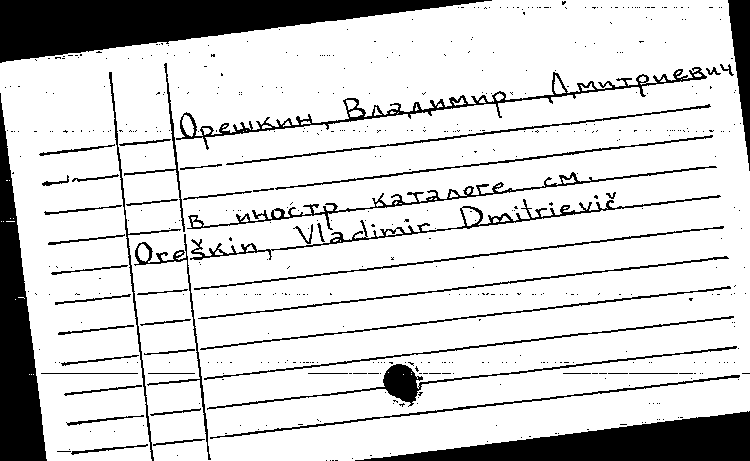 Орешкин, Владимир Дмитриевич
в иностр. каталоге см.
Oreškin, Vladimir Dmitrievič